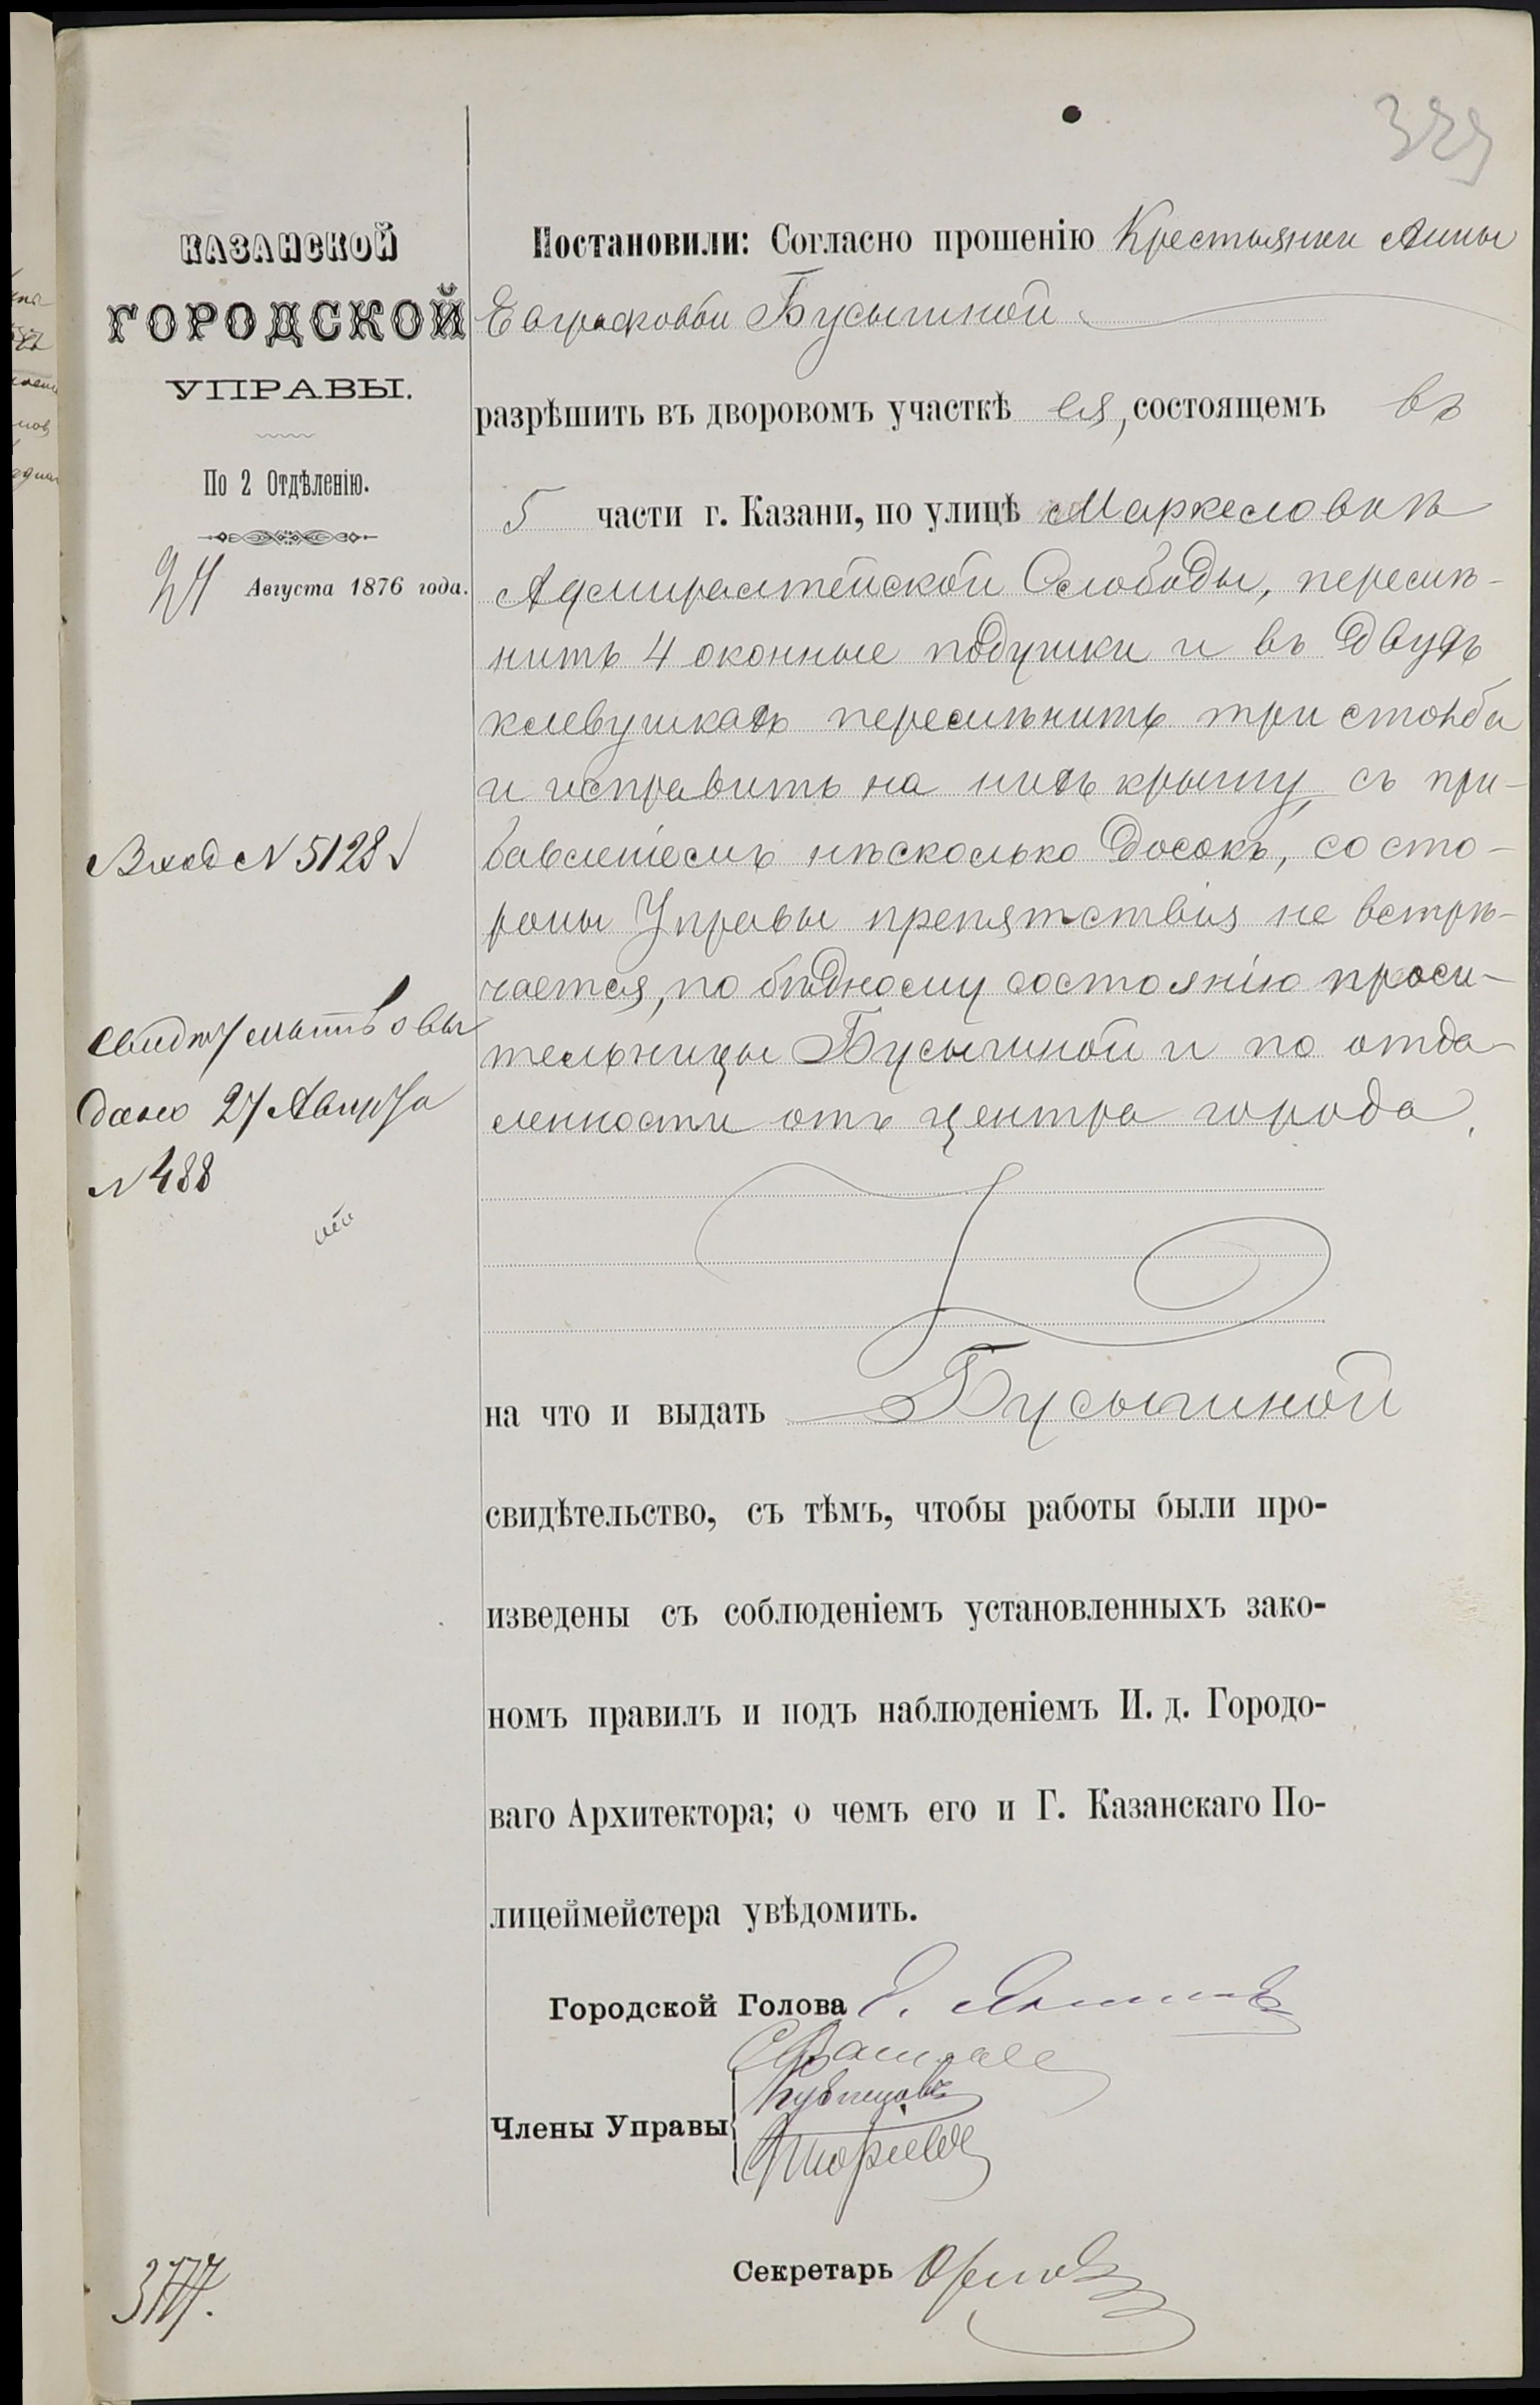 329
КАЗАНСКОЙ
ГОРОДСКОЙ
УПРАВЫ.
По 2 Отдѣленію.
24 Августа 1876 года.
Вход N 5128
Свидѣтельство вы
дано 27 Августа
N 488
Постановили: Согласно прошенію Крестьянки Анны
Евграфовой Бусыгиной
разрѣшить въ дворовомъ участкѣ ея, состоящемъ въ
5 части г. Казани, по улицѣ Маркеловкѣ
Адмиралтейской Слободы, перемѣ-
нить 4 оконные подушки и въ двухъ
хлевушкахъ перемѣнить три столба
и исправить на нихъ крышу, съ при-
бавленіемъ нѣсколько досокъ, со сто-
роны Управы препятствія не встрѣ-
чается, по бѣдному состоянію проси-
тельницы Бусыгиной и по отда-
ленности отъ центра города.
на что и выдать Бусыгиной
свидѣтельство, съ тѣмъ, чтобы работы были про-
изведены съ соблюденіемъ установленныхъ зако-
номъ правилъ и подъ наблюденіемъ И. д. Городо-
ваго Архитектора; о чемъ его и Г. Казанскаго По-
лицеймейстера увѣдомить.
Городской Голова
Члены Управы
Кузнецовъ
Секретарь Орлов
3177.